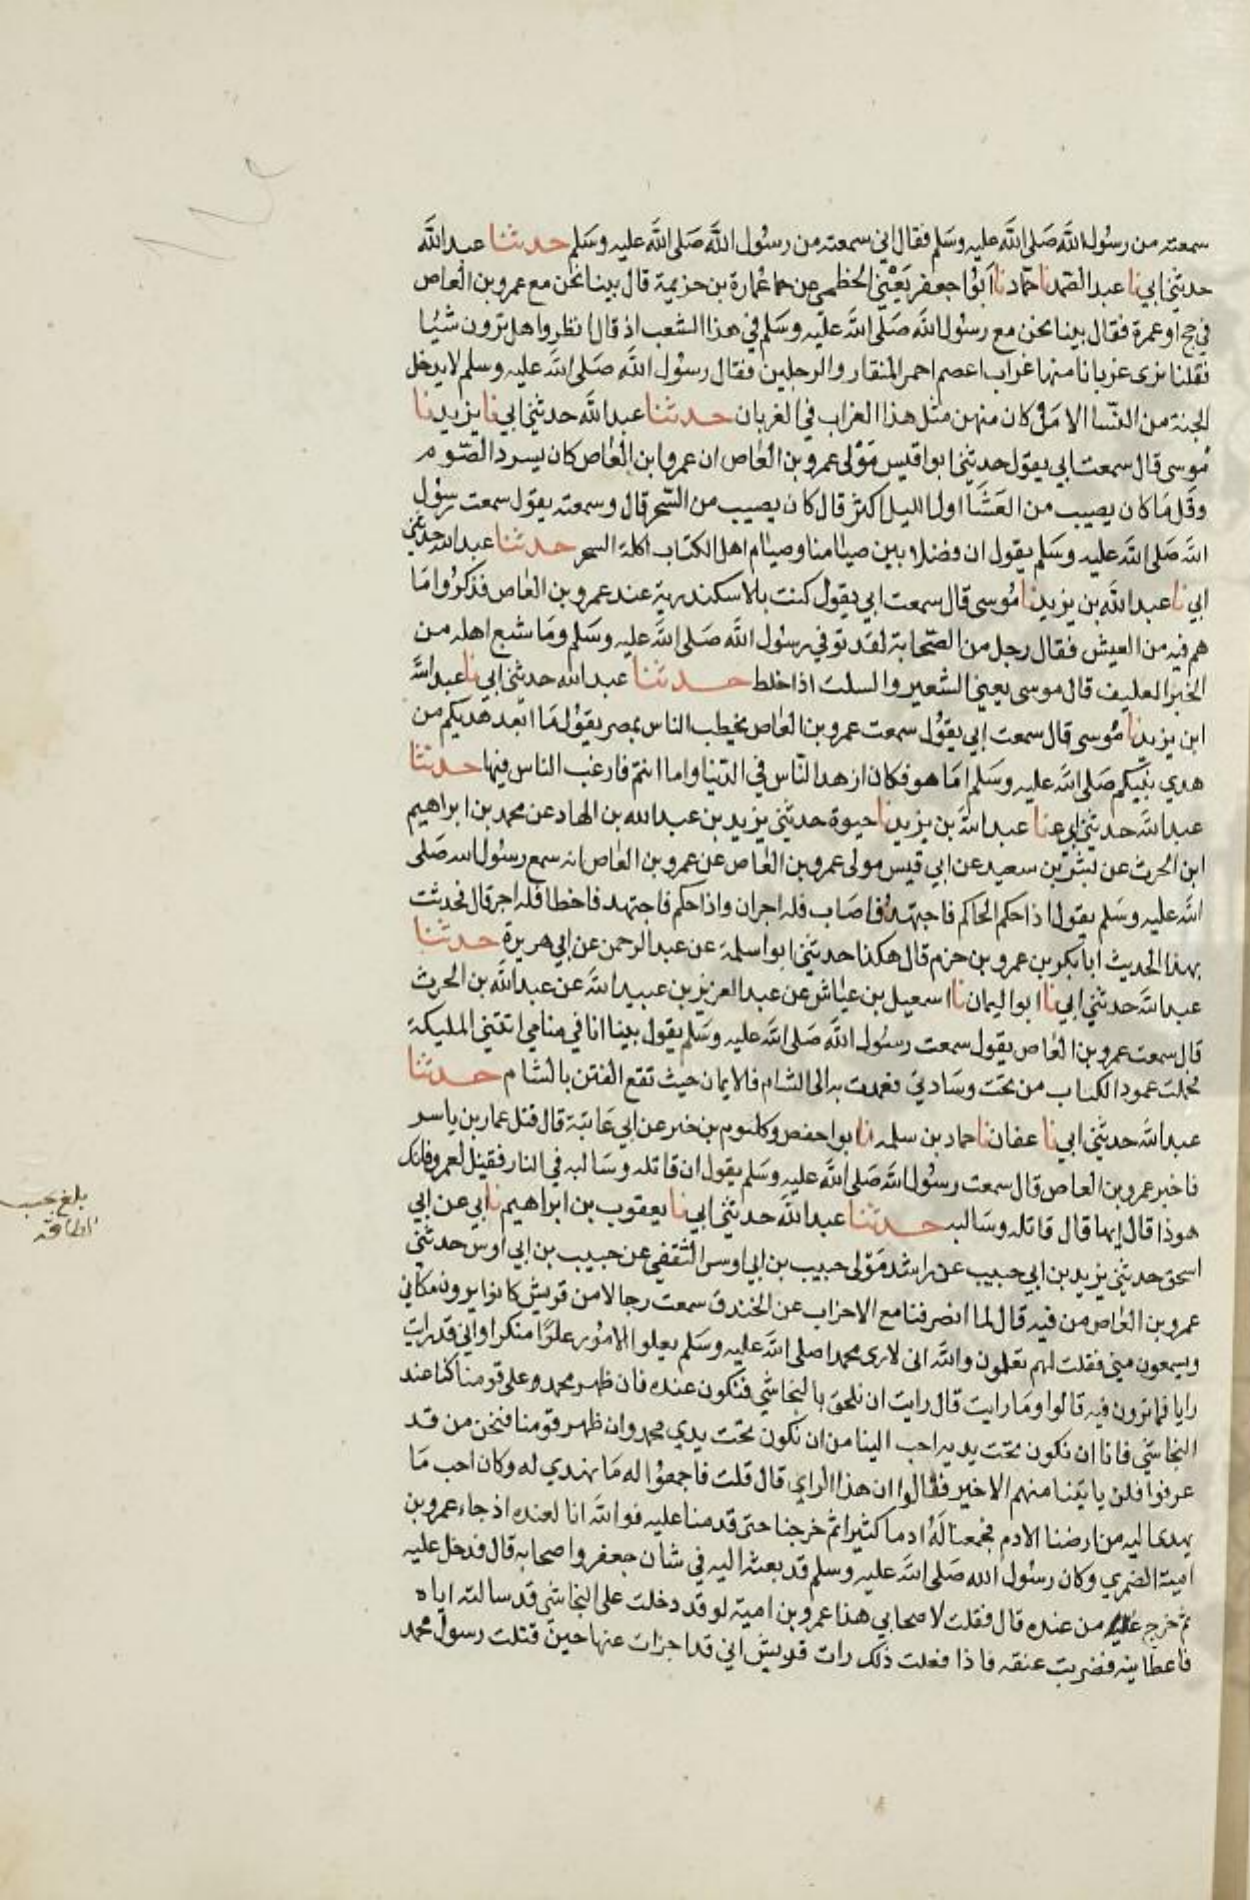 سمعته من رسول الله صلى الله عليه وسلم فقال اني سمعته من رسول الله صلى الله عليه وسلم حدثنا عبد الله
حدثني ابي نا عبد الصمد نا حماد نا ابوا جعفر يعني الخطمي عن عمارة بن خزيمة قال بينا نحن مع عمرو بن العاص
في حج او عمرة فقال بينا نحن مع رسول الله صلى الله عليه وسلم في هذا الشعب اذ قال انظروا هل ترون شيئا
فقلنا نرى غربانا منها غراب اعصم احمر المنقار والرجلين فقال رسول الله صلى الله عليه وسلم لا يدخل
الجنة من النسا الا من كان منهن مثل هذا الغراب في الغربان حدثنا عبد الله حدثني ابي نا يزيد نا
موسى قال سمعت ابي يقول حدثني ابوا قيس مولى عمرو بن العاص ان عمروا بن العاص كان يسرد الصوم
وقل ما كان يصيب من العشا اول الليل اكثر قال كان يصيب من السحر قال وسمعته يقول سمعت رسول
الله صلى الله عليه وسلم يقول ان فضلا بين صيامنا وصيام اهل الكتاب اكلة السحر حدثنا عبد الله حدثني
ابي نا عبد الله بن يزيد نا موسى قال سمعت ابي يقول كنت بالاسكندرية عند عمرو بن العاص فذكروا ما
هم فيه من العيش فقال رجل من الصحابة لقد توفي رسول الله صلى الله عليه وسلم وما شبع اهله من
الخبز العليف قال موسى يعني الشعير والسلت اذا خلط حدثنا عبد الله حدثني ابي نا عبد الله
ابن يزيد نا موسى قال سمعت ابي يقول سمعت عمرو بن العاص يخطب الناس بمصر يقول ما ابعد هديكم من
هدي نبيكم صلى الله عليه وسلم اما هو فكان ازهد الناس في الدنيا واما انتم فارغب الناس فيها حدثنا
عبد الله حدثني ابي نا عبد الله بن يزيد نا حيوة حدثني يزيد بن عبد الله بن الهاد عن محمد بن ابراهيم
ابن الحرث عن بشر بن سعيد عن ابي قيس مولى عمرو بن العاص عن عمرو بن العاص انه سمع رسول الله صلى
الله عليه وسلم يقول اذا حكم الحاكم فاجتهد فاصاب فله اجران واذا حكم فاجتهد فاخطا فله اجر قال فحدثت
بهذا الحديث ابا بكر بن عمرو بن حزم قال هكذا حدثني ابوا سلمة عن عبد الرحمن عن ابي هريرة حدثنا
عبد الله حدثني ابي نا ابوا اليمان نا اسمعيل بن عياش عن عبد العزيز بن عبيد الله عن عبد الله بن الحرث
قال سمعت عمرو بن العاص يقول سمعت رسول الله صلى الله عليه وسلم يقول بينا انا في منامي اتتني المليكة
فحملت عمود الكتاب من تحت وسادتي فعمدت به الى الشام فالايمان حيث تقع الفتن بالشام حدثنا
عبد الله حدثني ابي نا عفان نا حماد بن سلمه نا ابوا حفص وكلثوم بن خبر عن ابي غادية قال قتل عمار بن ياسر
فاخبر عمرو بن العاص قال سمعت رسول الله صلى الله عليه وسلم يقول ان قاتله وسالبه في النار فقيل لعمرو فانك
هو ذا قال انما قال قاتله وسالبه حدثنا عبد الله حدثني ابي نا يعقوب بن ابراهيم نا ابي عن ابي
بلغ
اسحق حدثني يزيد بن ابي حبيب عن راشد مولى حبيب بن ابي اوس الثقفي عن حبيب بن ابي اوس حدثني
عمرو بن العاص من فيه قال لما انصرفنا مع الاحزاب عن الخندق سمعت رجالا من قريش كانوا يرون مكاني
ويسمعون مني فقلت لهم تعلمون والله اني لارى محمدا صلى الله عليه وسلم يعلوا الامور علوا منكرا واني قد رايت
رايا فما ترون فيه قالوا وما رايت قال رايت ان نلحق بالنجاشي فنكون عنده فان ظهر محمد وعلى قومنا كنا عند
النجاشي فانا ان نكون تحت يديه احب الينا من ان نكون تحت يدي محمد وان ظهر قومنا فنحن من قد
عرفوا فلن ياتينا منهم الا خير فقالوا ان هذا الراي قال قلت فاجمعوا له ما نهدي له وكان احب ما
يهدى اليه من ارضنا الادم فجمعنا له ادما كثيرا ثم خرجنا حتى قدمنا عليه فوالله انا لعنده اذ جاء عمرو بن
امية الضمري وكان رسول الله صلى الله عليه وسلم قد بعثه اليه في شان جعفر واصحابه قال فدخل عليه
ثم خرج من عنده قال فقلت لاصحابي هذا عمرو بن امية لو قد دخلت على النجاشي قد سالته اياه
فاعطانيه فضربت عنقه فاذا فعلت ذلك رات قريش اني قد اجزات عنها حين قتلت رسول محمد